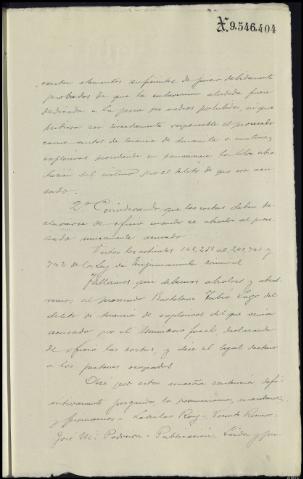 X.9.546.404
elementos suficientes de juicio debidamente
probados de que la embarcacion aludida fuera
dedicada a la pesca por medios prohibidos, ni que
pudiera ser directamente responsable el procesado
como autor de tenencia de dinamita o materias
explosivas procediendo en consecuencia la libre abso
lucion del mismo por el delito de que era acu
sado.
2º Considerando que las costas deben de
clararse de oficio cuando se absuelve al pro
cesado
Vistos los articulos 142, 203, 741 y
742 de la Ley de Enjuiciamiento criminal
Fallamos que debemos absolver y absol
vemos al procesado Bartolome Rubio del
delito de tenencia de explosivos del que venia
acusado por el Ministerio fiscal, declarando
de oficio las costas, y dese el legal destino
a los ocupados
Asi por esta nuestra sentencia defi
nitivamente juzgando, lo pronunciamos, mandamos
y firmamos = Ladislao Roig = Vicente
José Mª = Publicacion = Leida y